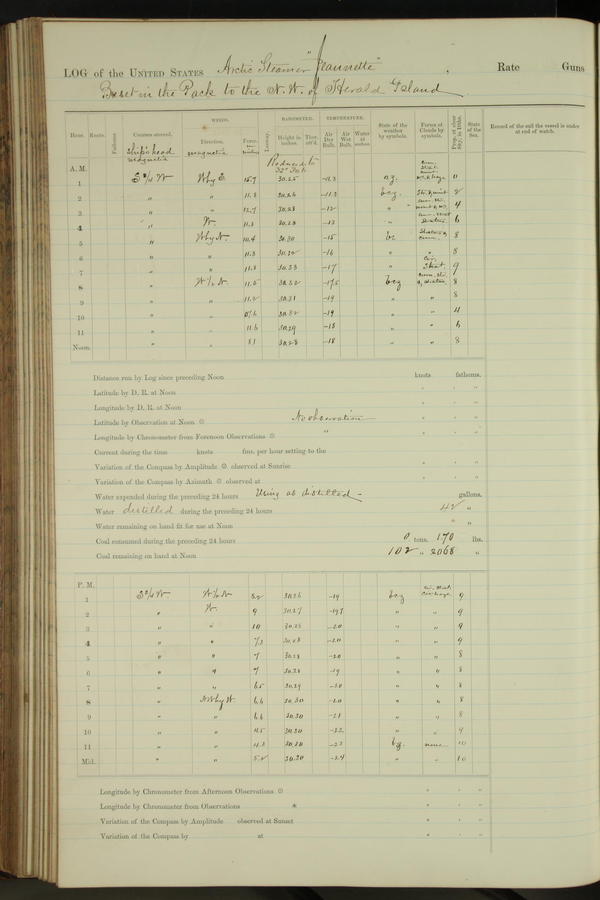 LOG of the UNITED STATES Arctic Steamer "Jeannette", Rate Guns
Beset in the Pack to the N. W. of Herald Island
WINDS. BAROMETER. TEMPERATURE.
Hour. Knots. Fathoms. Courses steered. Direction. Force. Leeway. Height in inches. Ther. att'd. Air Dry Bulb. Air Wet Bulb. Water at surface. State of the weather by symbols. Forms of Clouds by symbols. Prop. of clear Sky, in 10ths. State of the Sea. Record of the sail the vessel is under at end of watch.
Ship's head magnetic magnetic
Reduced to 32° Fah
A. M.
1 W by S 15.7 30.25 0
2 " " 11.8 30.26 bcg.
3 " " 12.7 30.28 -12 " 4
4 " W. 11.3 30.28 -13 " 6
5 " W by N. 10.4 30.30 -15 8
6 " " 11.3 -16 " " 8
7 " " 11.8 30.33 -17 " 9
8 " 11.5 30.32 -17.5 bcg 8
9 " " 11.2 30.31 -19 " " 8
10 " " 30.32 -19 " " 4
11 " " 11.6 30.29 -18 " " 6
Noon. " " 8.1 30.28 -18 " " 8
Distance run by Log since preceding Noon knots fathoms.
Latitude by D. R. at Noon ° ' "
Longitude by D. R. at Noon ° ' "
Latitude by Observation at Noon No observation ° ' "
Longitude by Chronometer from Forenoon Observations " ° ' "
Current during the time knots fms. per hour setting to the
Variation of the Compass by Amplitude observed at Sunrise ° ' "
Variation of the Compass by Azimuth observed at ° ' "
Water expended during the preceding 24 hours Using as distilled - gallons.
Water distilled during the preceding 24 hours 42 "
Water remaining on hand fit for use at Noon "
Coal consumed during the preceding 24 hours 0 tons. 170 lbs.
Coal remaining on hand at Noon 102 " 2068 "
P. M.
1 8.2 30.26 -19 bcg 9
2 " W. 9 30.27 -19.7 " " 9
3 " " 10 30.28 -20 " " 9
4 " " 7.3 30.28 -20 " " 9
5 " " 7 30.28 -20 " " 8
6 " " 7 30.28 -19 " " 8
7 " " 6.5 30.29 -20 " " 8
8 " 6.6 30.30 -20 " " 8
9 " " 6.6 30.30 -21 " " 8
10 " " 4.5 30.30 -22. " " 9
11 " " 4.3 30.30 -23 none 10
Mid. " " 5.2 30.30 -24 " " 10
Longitude by Chronometer from Afternoon Observations ° ' "
Longitude by Chronometer from Observations * ° ' "
Variation of the Compass by Amplitude observed at Sunset ° ' "
Variation of the Compass by at ° ' "